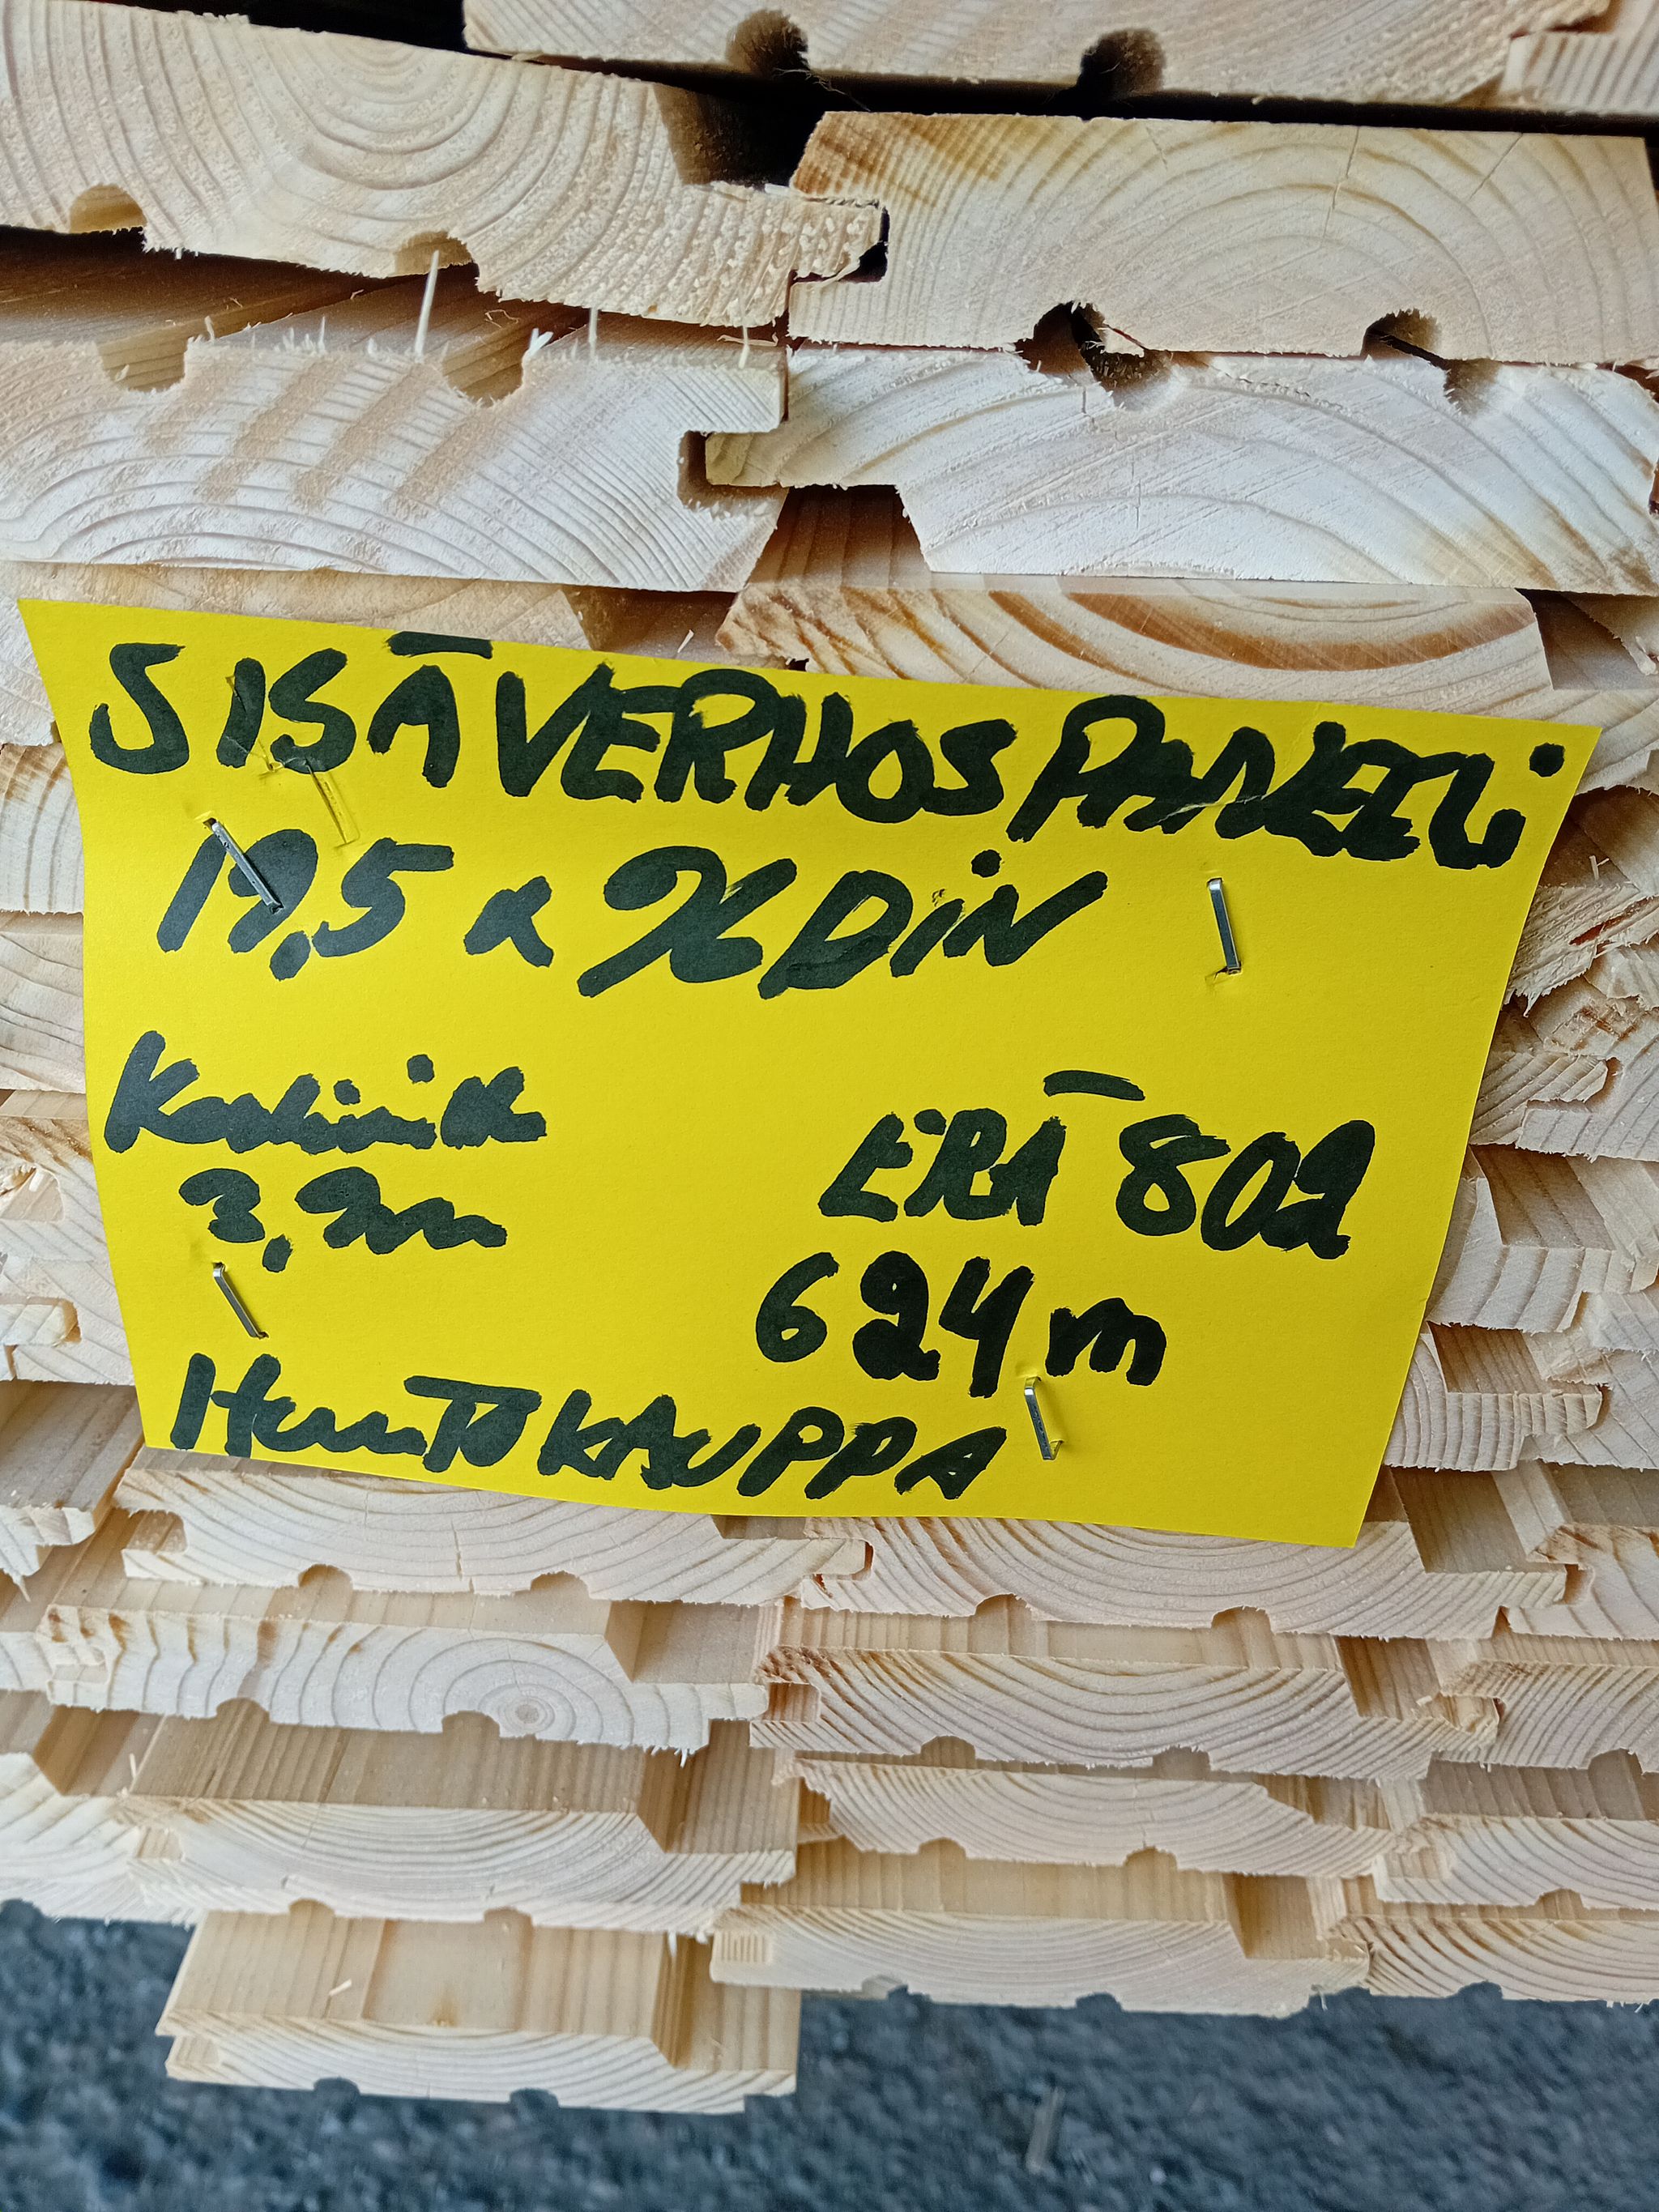 SISÄVERHOSPANEELi
19,5 x 96 DiN
3,9m
ERÄ 802
624 m
HuuTOKAUPPA